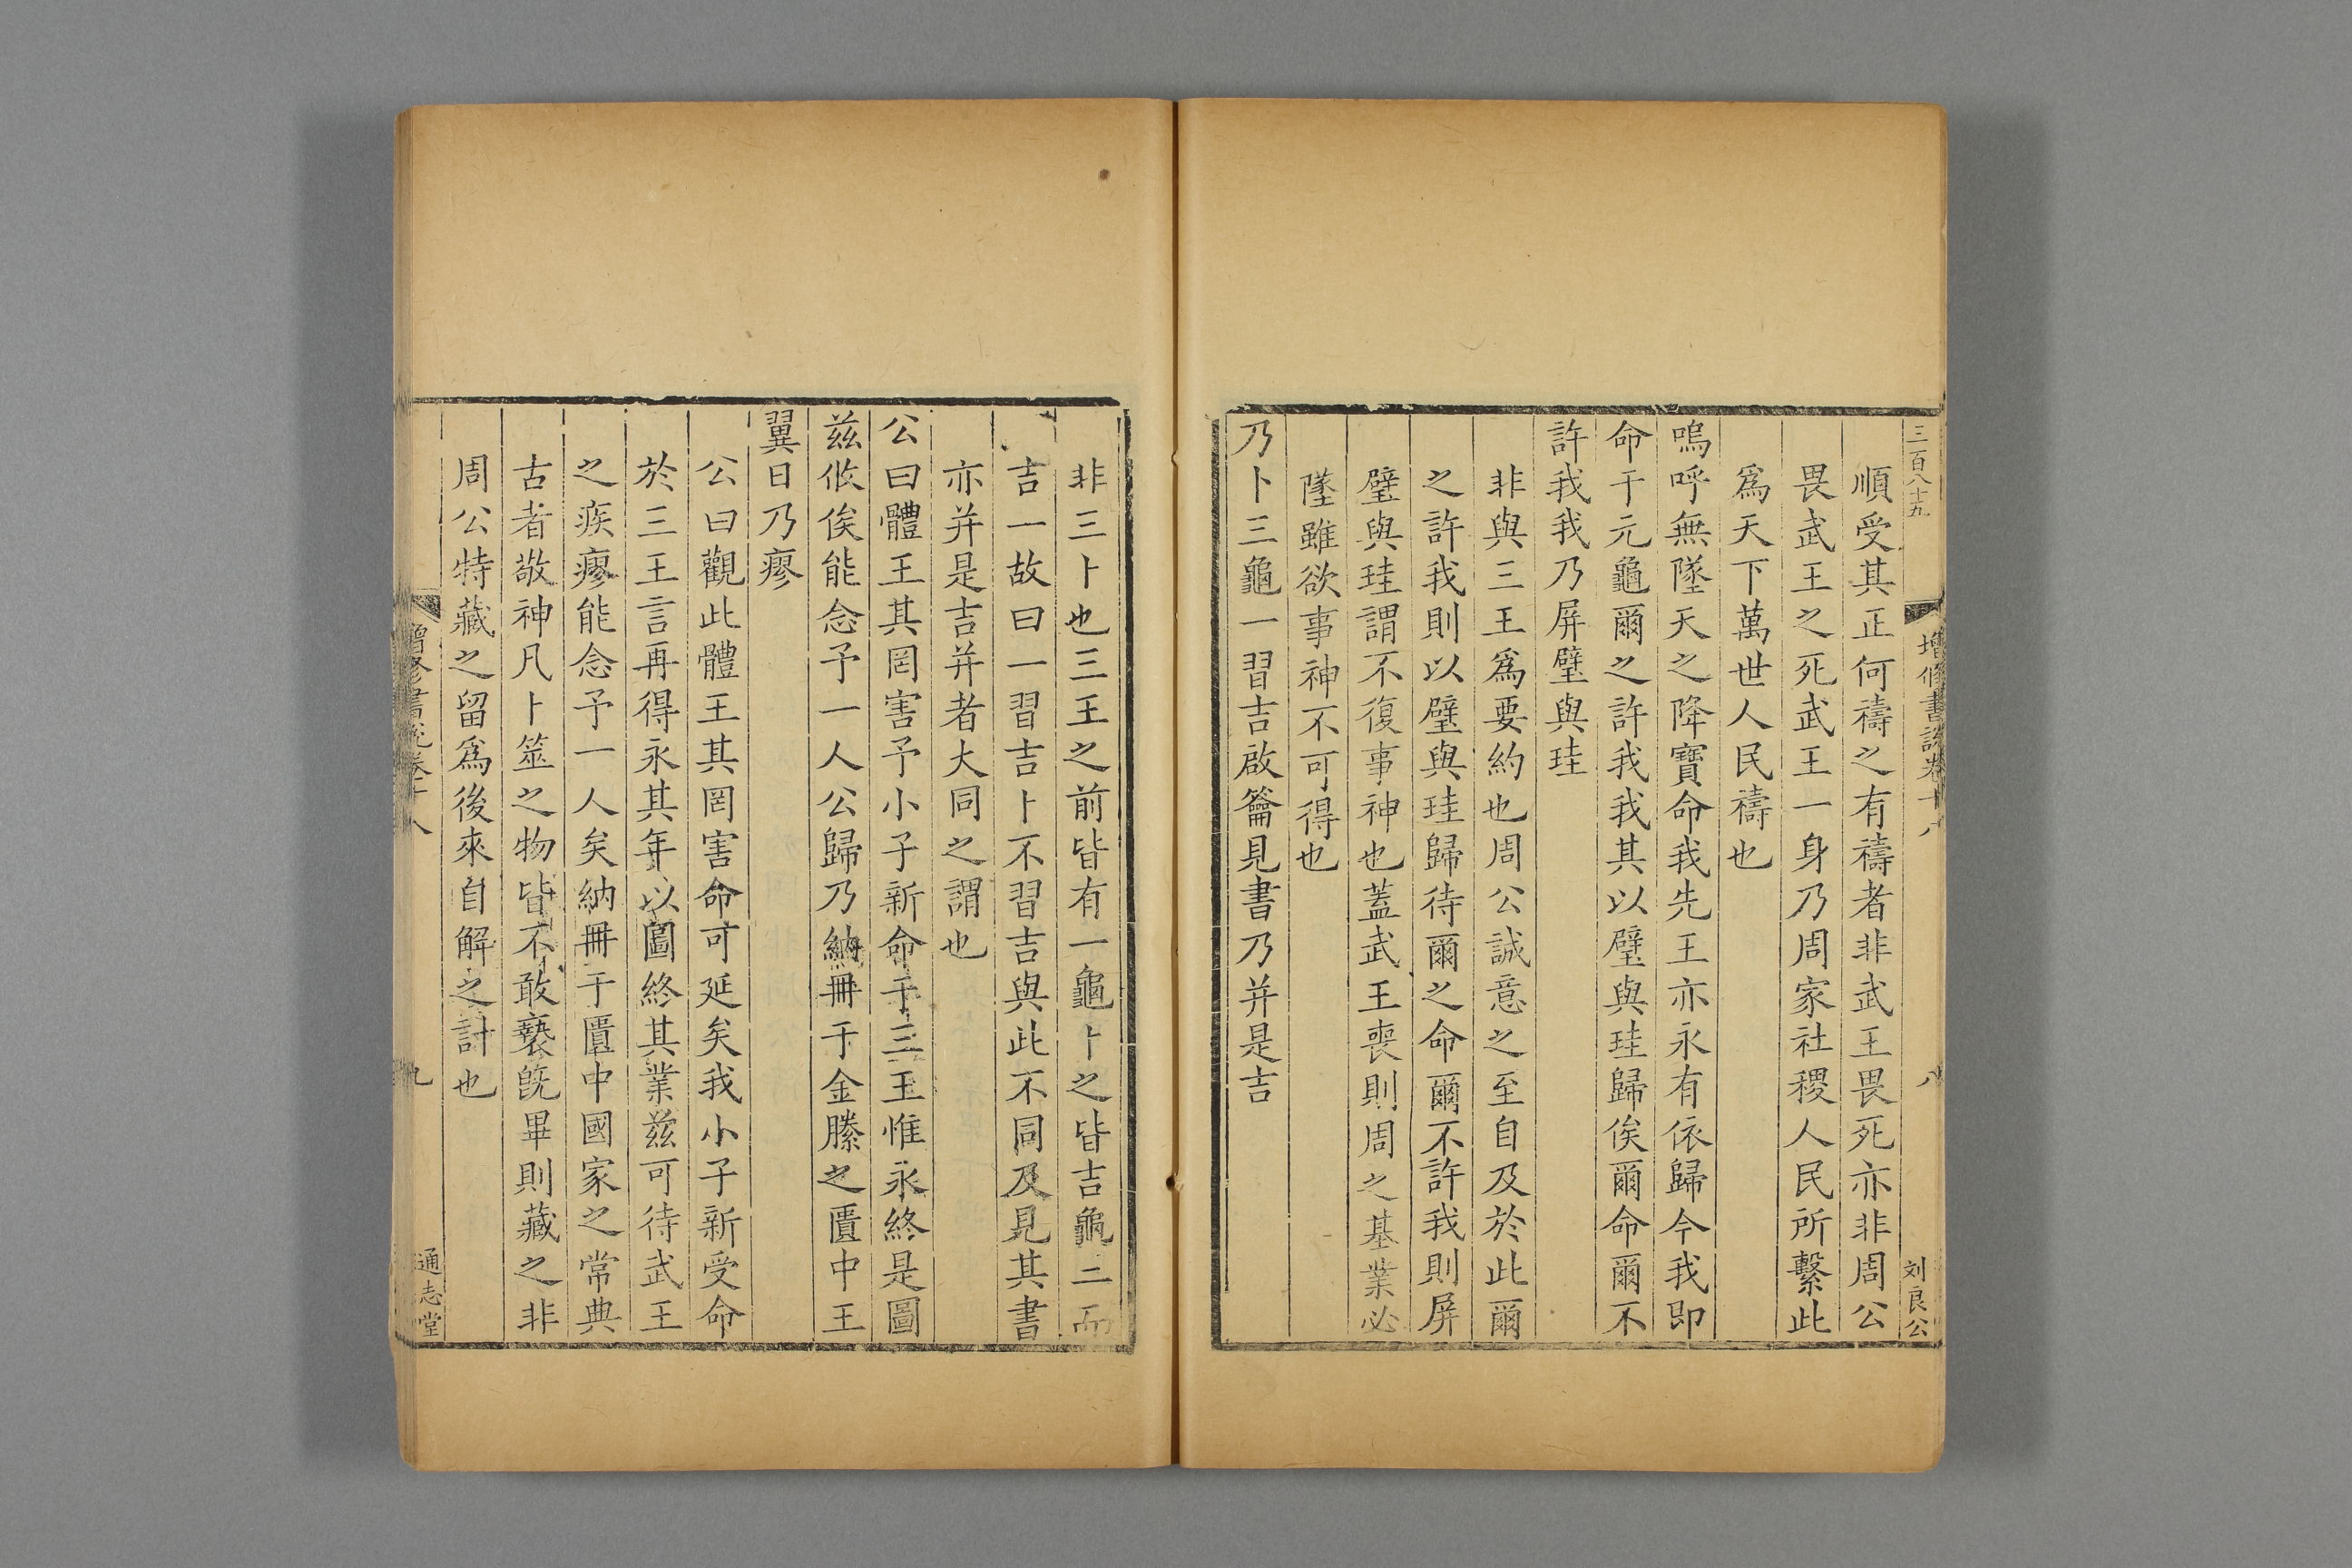 三百八十五
增修書説卷十八
八
刘良公
順受其正何禱之有禱者非武王畏死亦非周公
畏武王之死武王一身乃周家社稷人民所繫此
爲天下萬世人民禱也
嗚呼無墜天之降寶命我先王亦永有依歸今我即
命于元龜爾之許我我其以璧與珪歸俟爾命爾不
許我我乃屏璧與珪
非與三王爲要約也周公誠意之至自及於此爾
之許我則以璧與珪歸待爾之命爾不許我則屏
璧與珪謂不復事神也蓋武王喪則周之基業必
墜雖欲事神不可得也
乃卜三龜一習吉啟籥見書乃并是吉
非三卜也三王之前皆有一龜卜之皆吉龜三而
吉一故曰一習吉卜不習吉與此不同及見其書
亦并是吉并者大同之謂也
公曰體王其罔害予小子新命于三王惟永終是圖
兹攸俟能念予一人公歸乃納冊于金縢之匱中王
翼日乃瘳
公曰觀此體王其罔害命可延矣我小子新受命
於三王言再得永其年以圖終其業兹可待武王
之疾瘳能念予一人矣納冊于匱中國家之常典
古者敬神凡卜筮之物皆不敢褻旣畢則藏之非
周公特藏之留爲後來自解之計也
增修書説卷十八
九
通志堂